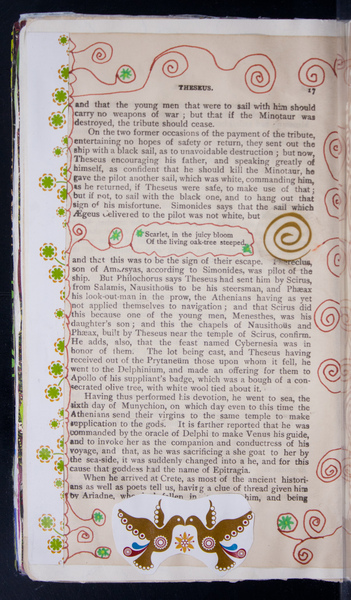 THESEUS. 17
and that the young men that were to sail with him should
carry no weapons of war ; but that if the Minotaur was
destroyed, the tribute should cease.
On the two former occasions of the payment of the tribute,
entertaining no hopes of safety or return, they sent out the
ship with a black sail, as to unavoidable destruction ; but now,
Theseus encouraging his father, and speaking greatly of
himself, as confident that he should kill the Minotaur, he
gave the pilot another sail, which was white, commanding him,
as he returned, if Theseus were safe, to make use of that ;
but if not, to sail with the black one, and to hang out that
sign of his misfortune. Simonides says that the sail which
Ægeus delivered to the pilot was not white, but
Scarlet, in the juicy bloom
Of the living oak-tree steeped,
and that this was to be the sign of their escape.
son of Amarsyas, according to Simonides, was pilot of the
ship. But Philochorus says Theseus had sent him by Scirus,
from Salamis, Nausithoüs to be his steersman, and Phæax
his look-out-man in the prow, the Athenians having as yet
not applied themselves to navigation ; and that Scirus did
this because one of the young men, Menesthes, was his
daughter's son ; and this the chapels of Nausithoüs and
Phæax, built by Theseus near the temple of Scirus, confirm.
He adds, also, that the feast named Cybernesia was in
honor of them. The lot being cast, and Theseus having
received out of the Prytaneüm those upon whom it fell, he
went to the Delphinium, and made an offering for them to
Apollo of his suppliant's badge, which was a bough of a con-
secrated olive tree, with white wool tied about it.
Having thus performed his devotion, he went to sea, the
sixth day of Munychion, on which day even to this time the
Athenians send their virgins to the same temple to make
supplication to the gods. It is farther reported that he was
commanded by the oracle of Delphi to make Venus his guide,
and to invoke her as the companion and conductress of his
voyage, and that, as he was sacrificing a she goat to her by
the sea-side, it was suddenly changed into a he, and for this
cause that goddess had the name of Epitragia.
When he arrived at Crete, as most of the ancient histori-
ans as well as poets tell us, having a clue of thread given him
by Ariadne, who fallen in him, and being